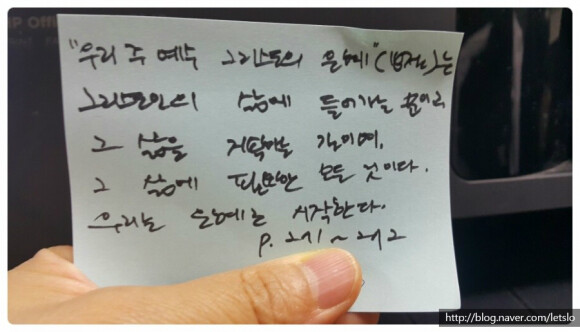 "우리 주 예수 그리스도의 은혜"( )는
그리스도인의 삶에 들어가는 문이고
그 삶을 지탱하는 길이며,
그 삶에 필요한 모든 것이다.
우리는 은혜로 시작한다.
P. 271~272
http://blog.naver.com/letslo